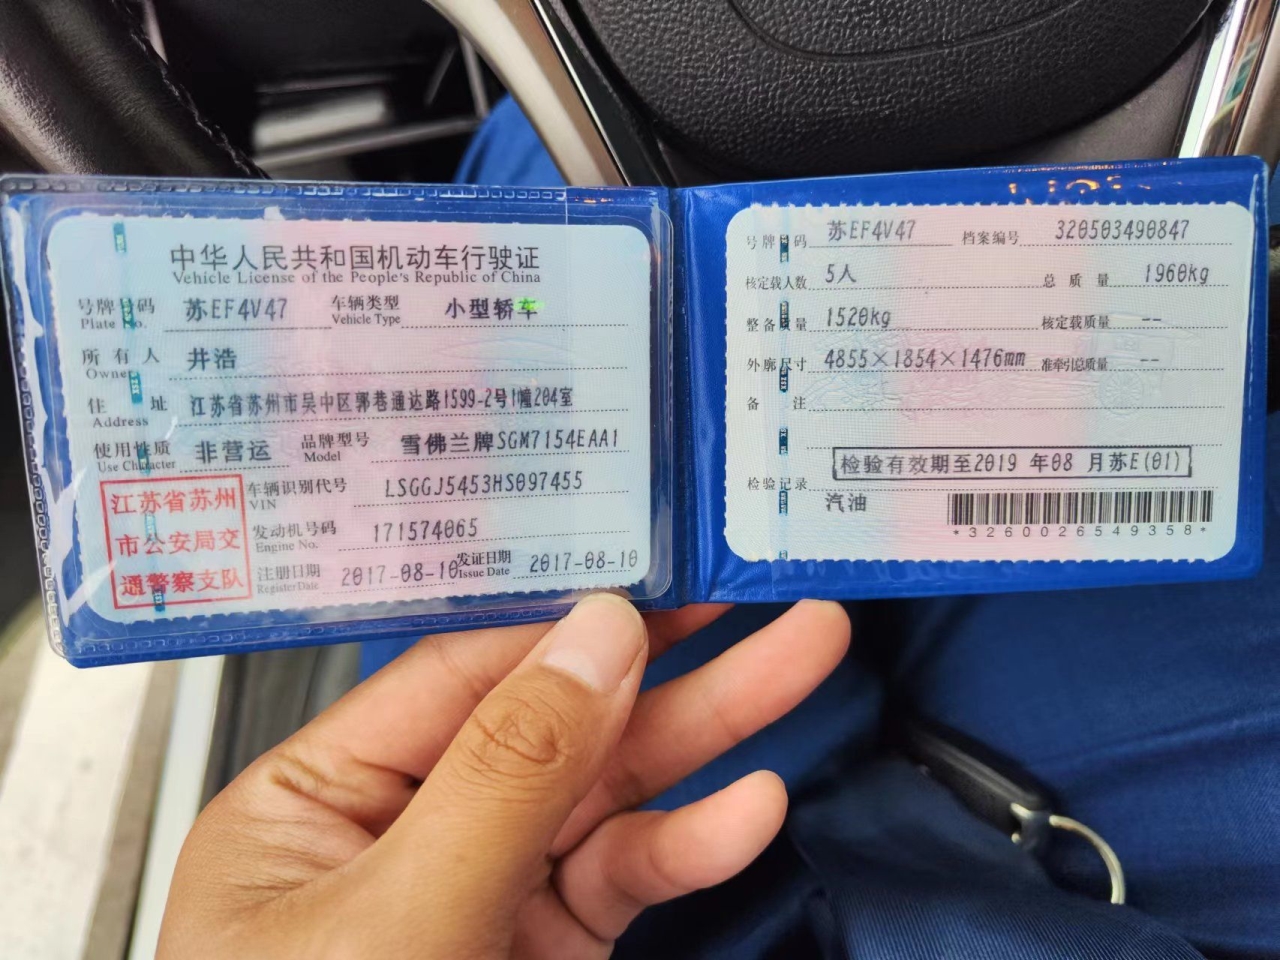 中华人民共和国机动车行驶证
Vehicle License of the People's Republic of China
号牌号码 苏EF4V47 车辆类型 小型轿车
Plate No. Vehicle Type
所有人 井浩
Owner
住址 江苏省苏州市吴中区郭巷通达路1599-2号1幢204室
Address
使用性质 非营运 品牌型号 雪佛兰牌SGM7154EAA1
Use Character Model
江苏省苏州
市公安局交
通警察支队
车辆识别代号 LSGGJ5453HS097455
VIN
发动机号码 171574065
Engine No.
注册日期 2017-08-10 发证日期 2017-08-10
Register Date Issue Date
号牌号码 苏EF4V47 档案编号 320503490847
核定载人数 5人 总质量 1960kg
整备质量 1520kg 核定载质量 --
外廓尺寸 4855×1854×1476mm 准牵引总质量 --
备注
检验有效期至2019 年08 月苏E(01)
检验记录
汽油
*3260026549358*